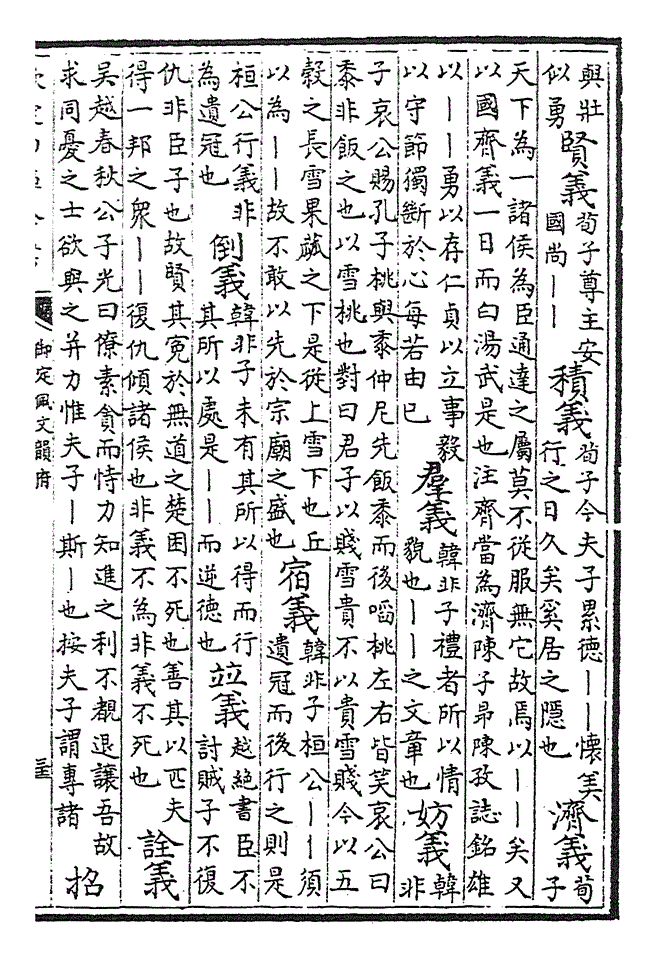 與壯似勇 賢義 荀子尊主安國尚丨丨 積義 荀子今夫子累德丨丨懷美行之日久矣奚居之隱也 濟義 荀子
天下為一諸侯為臣通達之屬莫不從服無它故焉以丨丨矣又
以國齊義一日而白湯武是也注齊當為濟陳子昻陳孜誌銘雄
以丨丨勇以存仁貞以立事毅以守節獨斷於心每若由已 羣義 韓非子禮者所以情貌也丨丨之文章也 妨義 韓非
子哀公賜孔子桃與黍仲尼先飯黍而後啗桃左右皆笑哀公曰
黍非飯之也以雪桃也對曰君子以賤雪貴不以貴雪賤今以五
穀之長雪果蓏之下是從上雪下也丘以為丨丨故不敢以先於宗廟之盛也 宿義 韓非子桓公丨丨須遺冠而後行之則是
桓公行義非為遺冠也 倒義 韓非子未有其所以得而行其所以處是丨丨而逆德也 竝義 越絶書臣不討賊子不復
仇非臣子也故賢其冤於無道之楚困不死也善其以匹夫得一邦之衆丨丨復仇傾諸侯也非義不為非義不死也 詮義
吳越春秋公子光曰僚素貪而恃力知進之利不覩退讓吾故求同憂之士欲與之并力惟夫子丨斯丨也按夫子謂專諸 招
御定佩文韻府